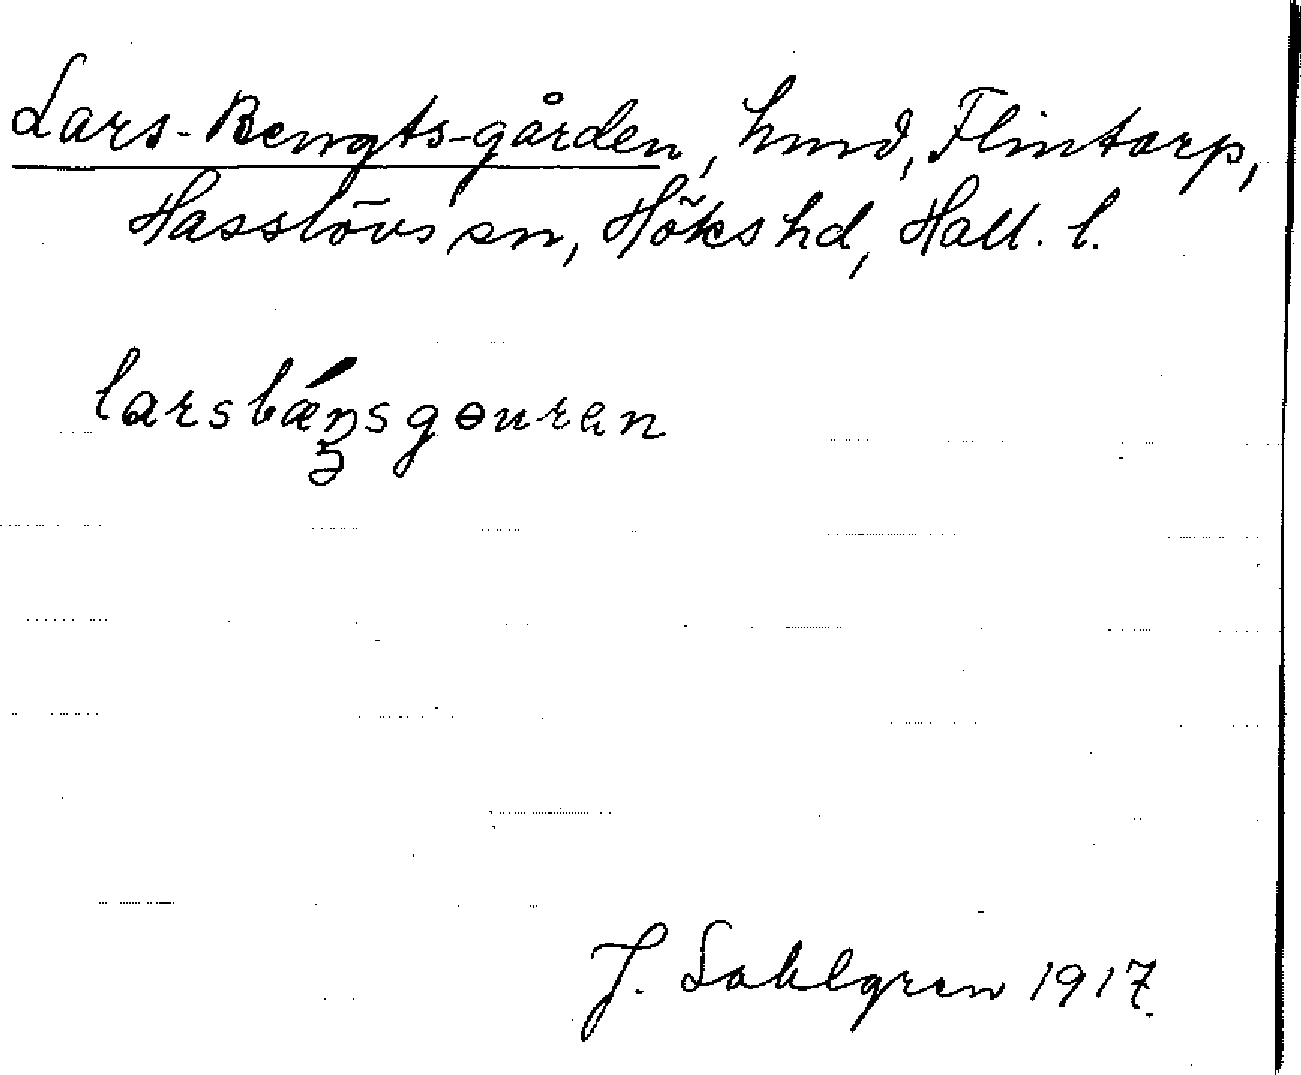 Lars-Bengts-gården, hmd, Flintarp,
Hasslövs sn, Höks hd, Hall. l.
larsbǽŋsgɵuren
J. Sahlgren 1917